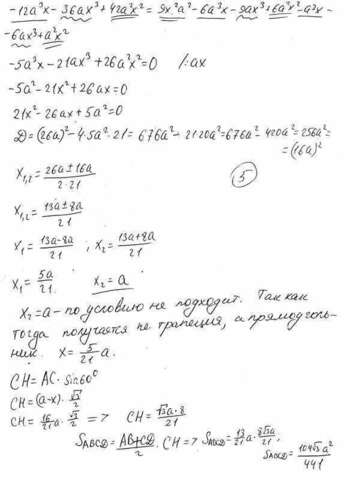 -12a³x - 36ax³ + 42a²x² = 9x²a² - 6a³x - 9ax³ + 6a²x² - a³x -
- 6ax³ + a²x²
-5a³x - 21ax³ + 26a²x² = 0 /:ax
-5a² - 21x² + 26ax = 0
21x² - 26ax + 5a² = 0
D = (26a)² - 4·5a²·21 = 676a² - 2120a² = 676a² - 420a² = 256a² =
= (16a)²
x₁,₂ = (26a ± 16a)/(2·21)
5
x₁,₂ = (13a ± 8a)/21
x₁ = (13a - 8a)/21 , x₂ = (13a + 8a)/21
x₁ = 5a/21 x₂ = a
x₂ = a - по условию не подходит. Так как
тогда получается не трапеция, а прямоуголь-
ник. x = 5/21 a.
CH = AC · sin60⁰
CH = (a-x) · √3/2
CH = 16/21 a · √3/2 => CH = √3a·8/21
S_ABCD = (AB+CD)/2 · CH => S_ABCD = 13/21 a · 8√3a/21,
S_ABCD = 104√3a²/441